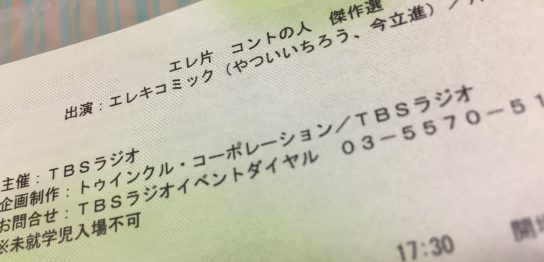 エレ片 コントの人 傑作選
出演：エレキコミック（やついいちろう、今立進）／
主催：ＴＢＳラジオ
企画制作：トゥインクル・コーポレーション／ＴＢＳラジオ
お問合せ：ＴＢＳラジオイベントダイヤル ０３－５５７０－５１
※未就学児入場不可
17:30 開場